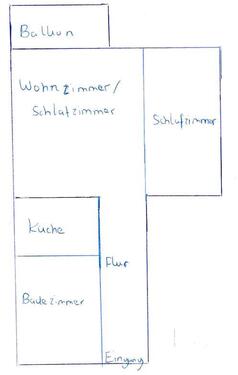 Balkon
Wohnzimmer/
Schlafzimmer
Schlafzimmer
Küche
Flur
Badezimmer
Eingang